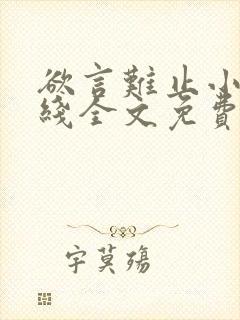 欲言難止小
綫全文免費
字莫殤